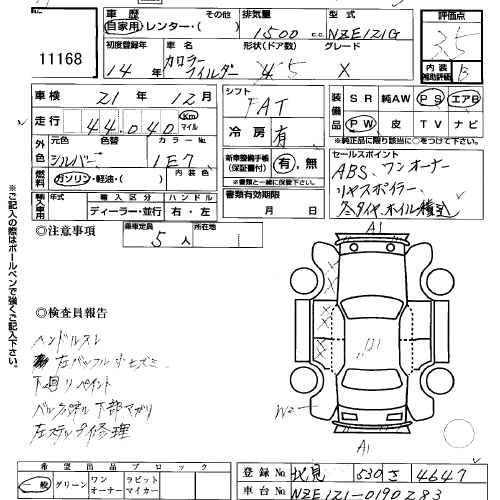 11168
車歴 その他 排気量 型式 評価点
自家用・レンター・( ) 1500 c.c. NZE121G
初度登録年 車名 形状(ドア数) グレード 3.5
14年 カローラ フィルダー 5 X 内装補助評価 B
車検 21年 12月 シフト FAT 装備品 SR 純AW PS エアB
走行 44,040 Km マイル PW 皮 TV ナビ
冷房 有 ※純正品に限り該当に○をつけて下さい。
外色 元色 色替 カラーNo
シルバー 1E7 新車整備手帳(保証書付) 有,無 セールスポイント
燃料 ガソリン・軽油・( ) 内装色 ※書類と一緒に保管下さい。 ABS、ワンオーナー
輸入車用 年式 輸入区分 ハンドル 書類有効期限 リヤスポイラー、
ディーラー・並行 右・左 月 日 冬タイヤ、ホイル積込
◎注意事項 乗車定員 5人 所在地
A1
◎検査員報告
ハンドルスレ
左バックフル小ヒズミ
下廻りペイント
バックパネル下部マガリ
左ステップ修理
A1
※ご記入の際はボールペンで強くご記入下さい。
希望出品ブロック
一般 グリーン ワンオーナー ラビットマイカー
登録No 北見 530 さ 4647
車台No NZE121-0190283